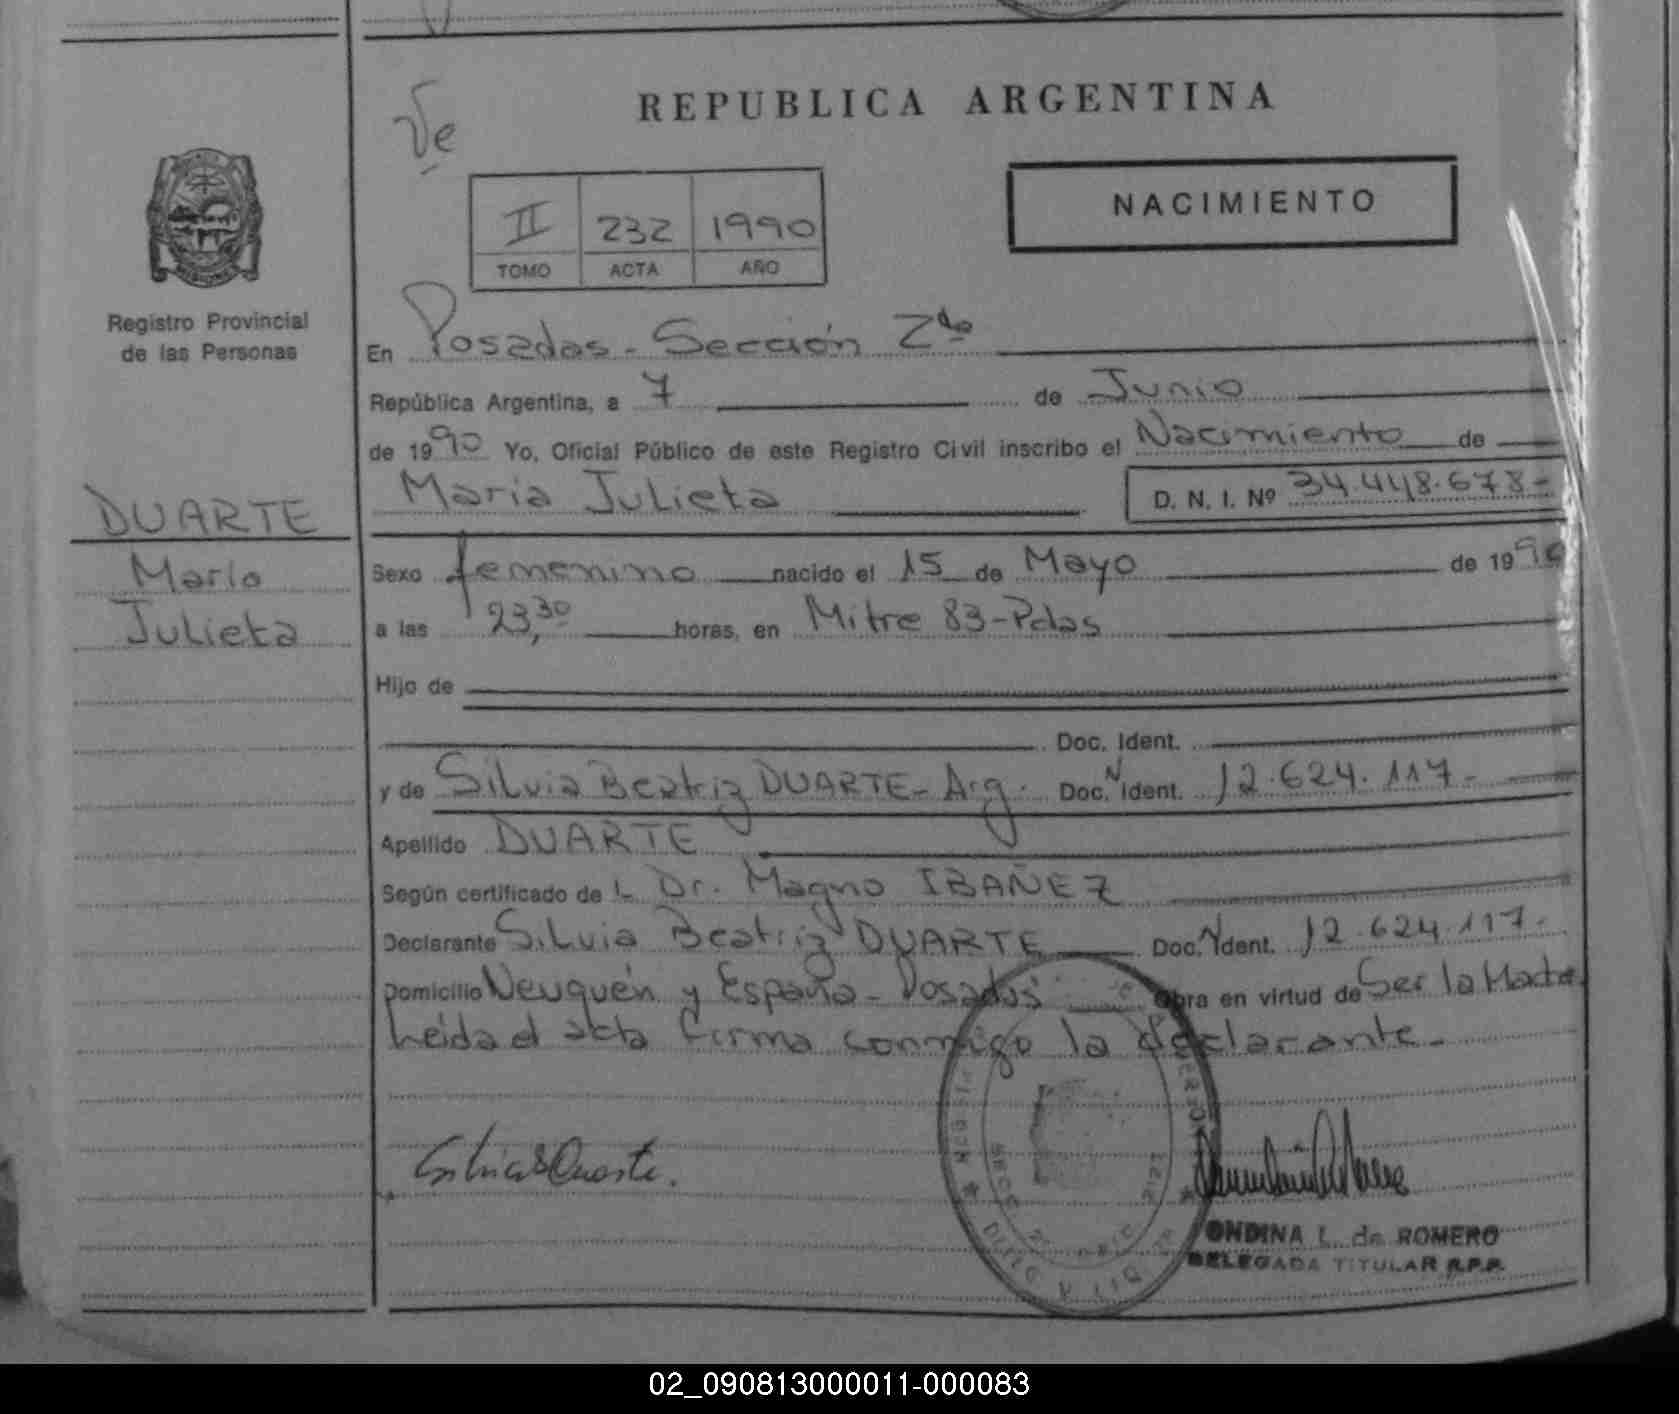 REPUBLICA ARGENTINA
Ve
NACIMIENTO
II 232 1990
TOMO ACTA AÑO
Registro Provincial
de las Personas
En Posadas - Sección 2da
República Argentina, a 7 de Junio
de 1990 Yo, Oficial Público de este Registro Civil inscribo el Nacimiento de
María Julieta D. N. I. Nº 34.448.678-
DUARTE
María
Julieta
Sexo femenino nacido el 15 de Mayo de 1990
a las 23,30 horas, en Mitre 83-Pdas
Hijo de
Doc. Ident.
y de Silvia Beatriz DUARTE - Arg. Doc. N Ident. 12.624.117-
Apellido DUARTE
Según certificado de L Dr. Magno IBAÑEZ
Declarante Silvia Beatriz DUARTE Doc. N Ident. 12.624.117-
Domicilio Neuquén y España - Posadas Obra en virtud de Ser la Madre
Leída el acta firma conmigo la declarante-
Silvia B Duarte.
ONDINA L. de ROMERO
DELEGADA TITULAR R.P.P.
02_090813000011-000083